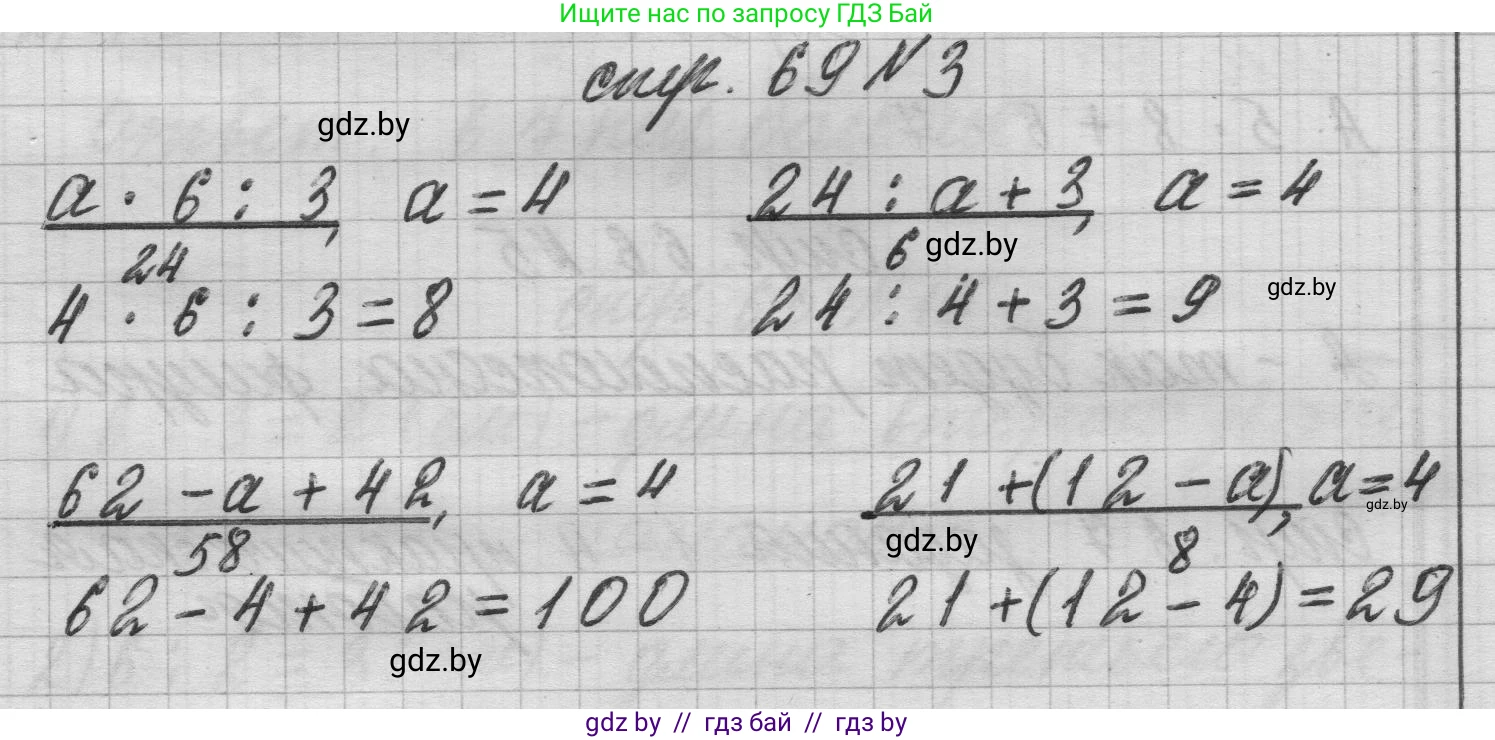 Ищите нас по запросу ГДЗ Бай
стр. 69 № 3
gdz.by
a · 6 : 3, a = 4
24 : a + 3, a = 4
24
6 gdz.by
4 · 6 : 3 = 8
24 : 4 + 3 = 9
gdz.by
62 - a + 42, a = 4
21 + (12 - a), a = 4
gdz.by
58
gdz.by
8
62 - 4 + 42 = 100
21 + (12 - 4) = 29
gdz.by
gdz by // гдз бай // гдз by